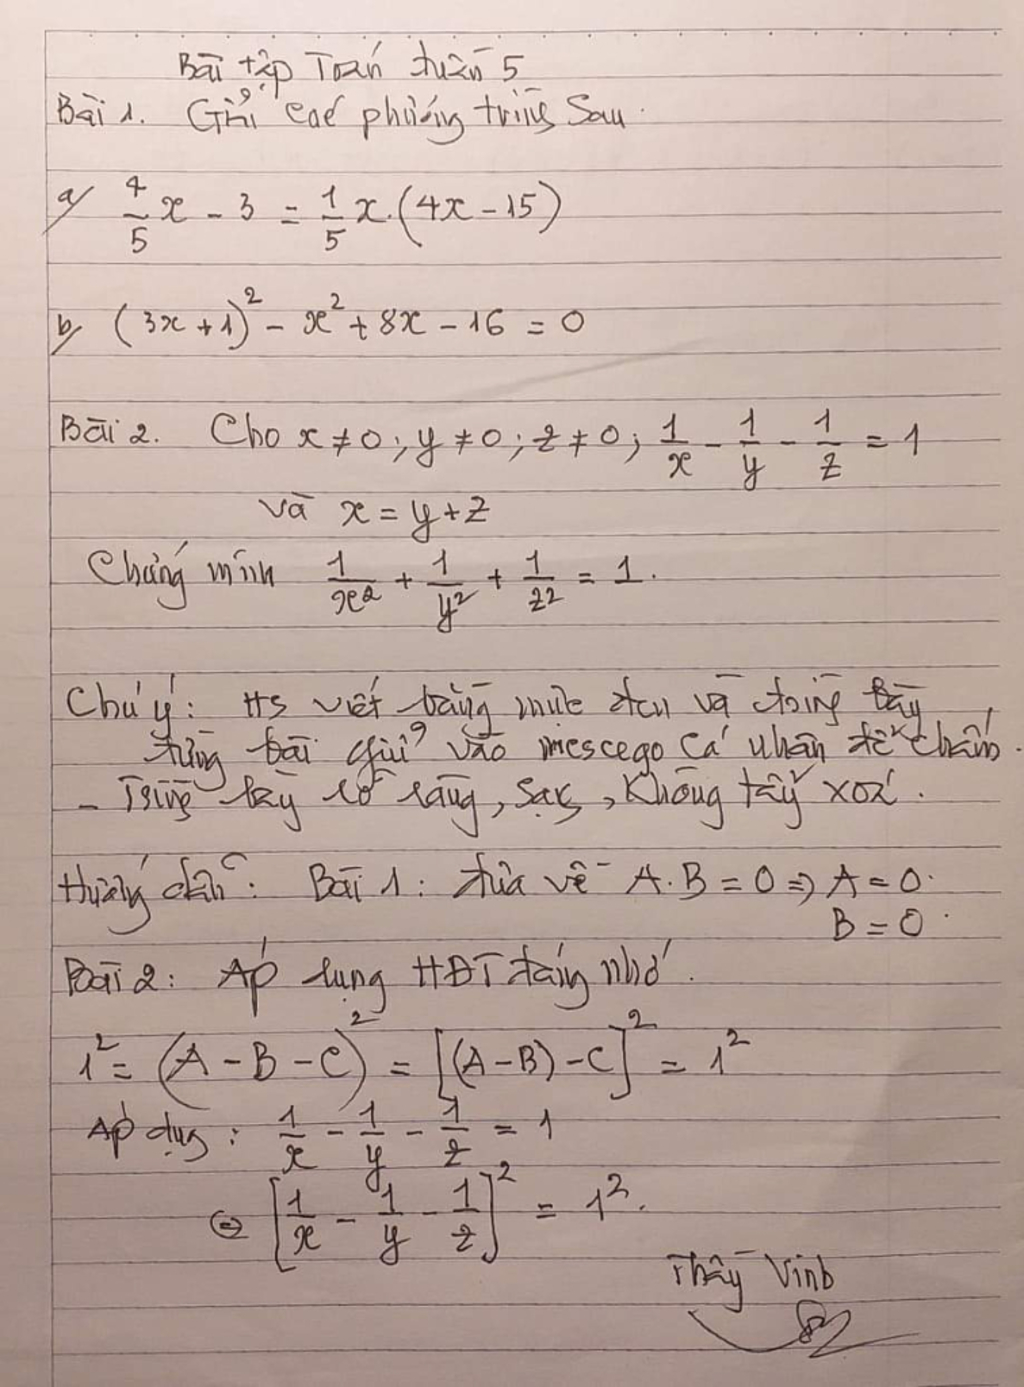 Bài tập Toán tuần 5
Bài 1. Giải các phương trình sau.
a/ 4/5 x - 3 = 1/5 x.(4x - 15)
b/ (3x + 1)² - x² + 8x - 16 = 0
Bài 2. Cho x ≠ 0; y ≠ 0; z ≠ 0; 1/x - 1/y - 1/z = 1
và x = y + z
Chứng minh 1/x² + 1/y² + 1/z² = 1.
Chú ý: HS viết bằng mực đen và trình bày
từng bài gửi vào mescego cá nhân để chấm.
- Trình bày rõ ràng, sạch, không tẩy xoá.
Hướng dẫn: Bài 1: đưa về A.B = 0 => A = 0.
B = 0.
Bài 2: Áp dụng HĐT đáng nhớ.
1² = (A - B - C)² = [(A - B) - C]² = 1²
Áp dụng: 1/x - 1/y - 1/z = 1
⇔ [1/x - 1/y - 1/z]² = 1².
Thầy Vinh